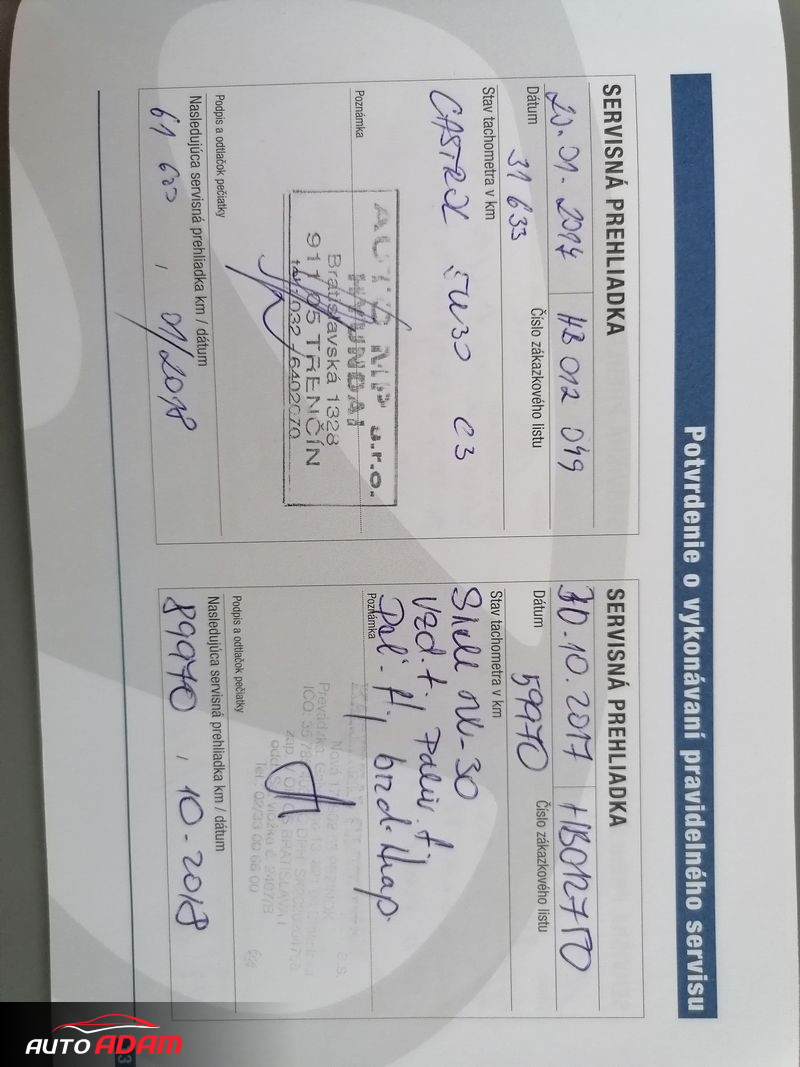 Potvrdenie o vykonávaní pravidelného servisu
SERVISNÁ PREHLIADKA
20.01.2017 HB 012 049
Dátum Číslo zákazkového listu
31 633
Stav tachometra v km
CASTROL 5W30 C3
Poznámka
AUTO MIP s.r.o.
HYUNDAI
Bratislavská 1328
911 05 TRENČÍN
tel.: 032 / 6402070
Podpis a odtlačok pečiatky
Nasledujúca servisná prehliadka km / dátum
61 600 , 01/2018
SERVISNÁ PREHLIADKA
30.10.2017
Dátum Číslo zákazkového listu
59970
Stav tachometra v km
Shell
vzd. f., paliv. f.,
Peľ. f., brzd. kvap.
Poznámka
a.s.
BRATISLAVA
Tel.: 02/33 00 66 00
Podpis a odtlačok pečiatky
Nasledujúca servisná prehliadka km / dátum
89970 , 10-2018
AUTO ADAM
3